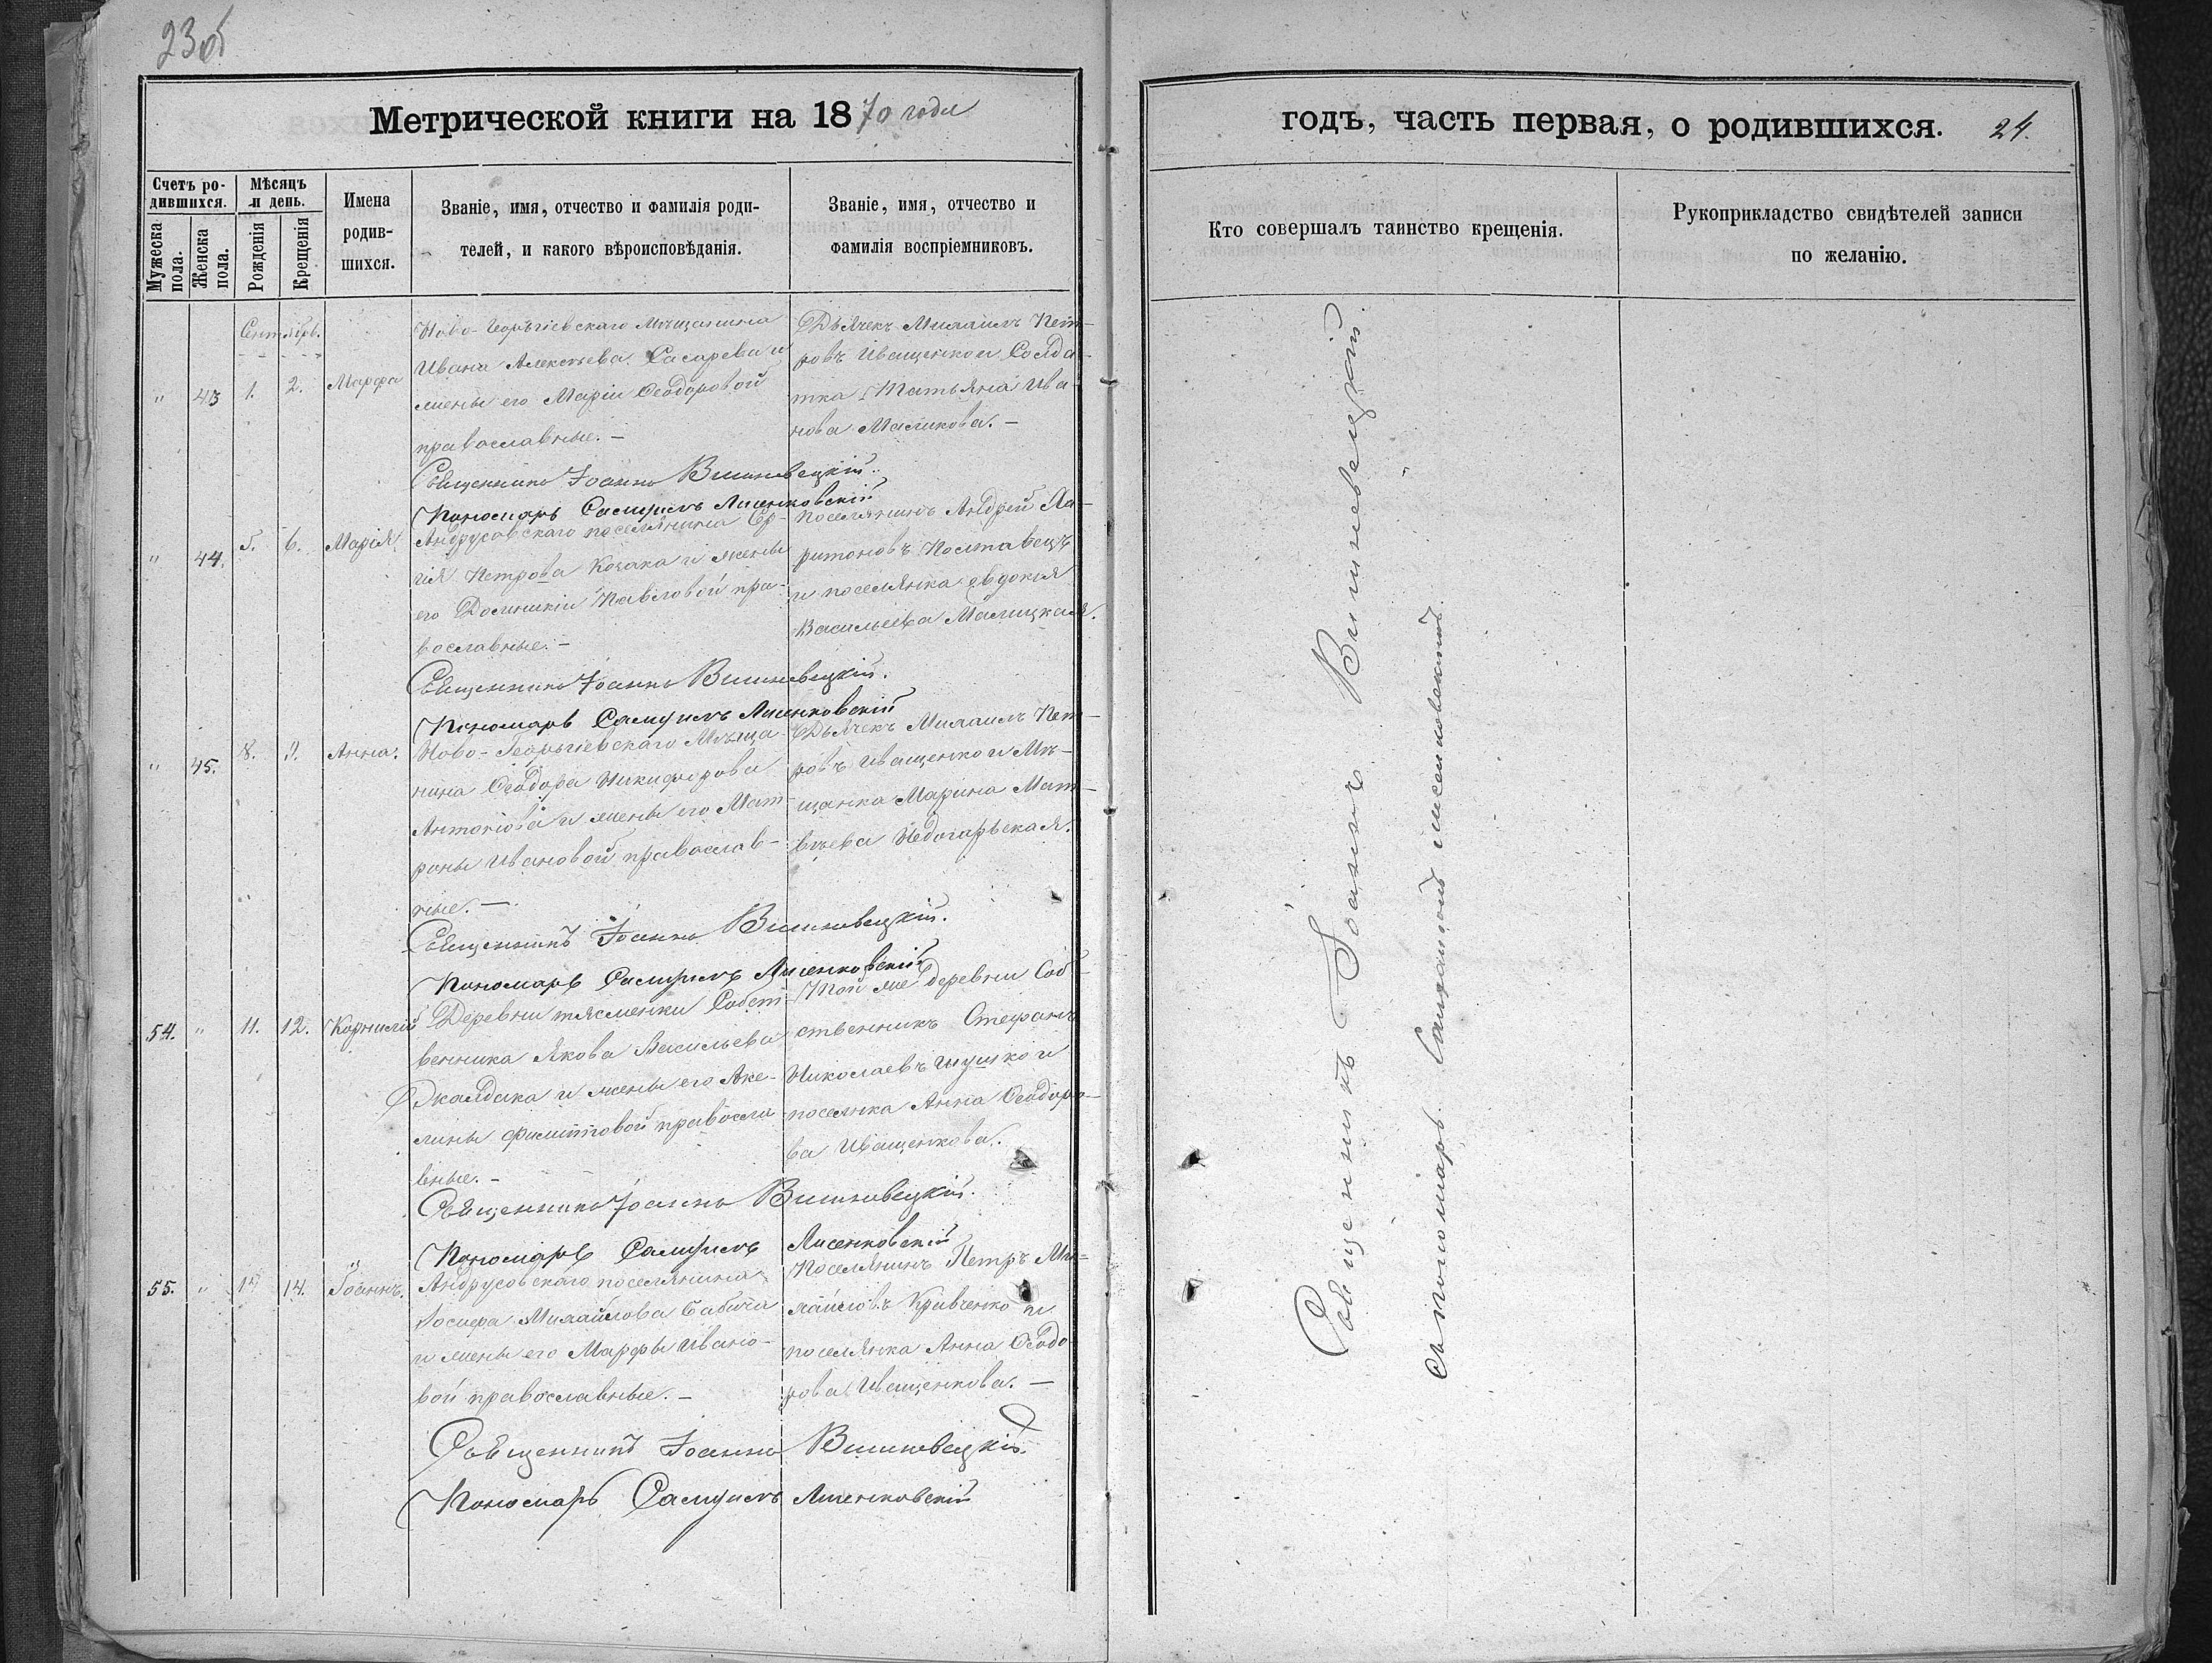 23об
Метрической книги на 1870 года
Счетъ ро-
дившихся.
Мужеска
пола.
Женска
пола.
Мѣсяцъ
и день.
Рожденія
Крещенія
Имена
родив-
шихся.
Званіе, имя, отчество и фамилія роди-
телей, и какого вѣроисповѣданія.
Званіе, имя, отчество и
фамилія воспріемниковъ.
Сентябрь.
" 43 1. 2. Марфа
Ново-Георгіевскаго Мѣщанина
Ивана Алексѣева Сасарева и
жены его Маріи Ѳеодоровой
православные. —
Дьячекъ Михаилъ Пет-
ровъ Иващенко и Солда-
тка Татьяна Ива-
нова Маликова. —
Священникъ Іоаннъ Вишневецкій.
Пономарь Самуилъ Лисенковскій
" 44. 5. 6. Марія.
Андрусовскаго поселянина Ер-
гія Петрова Козака и жены
его Домникіи Павловой пра-
вославные. —
Поселянинъ Андрей Ха-
ритоновъ Полтавецъ
и поселянка Евдокія
Васильева Малицкая.
Священникъ Іоаннъ Вишневецкій.
Пономарь Самуилъ Лисенковскій
" 45. 8. 9. Анна.
Ново-Георгіевскаго Мѣща-
нина Ѳеодора Никифорова
Антонова и жены его Мат-
роны Ивановой православ-
ные. —
Дьячекъ Михаилъ Пет-
ровъ Иващенко и Мѣ-
щанка Марина Мат-
вѣева Недогарская.
Священникъ Іоаннъ Вишневецкій.
Пономарь Самуилъ Лисенковскій
54. " 11. 12. Корнилій
Деревни Тясменки Собст-
венника Якова Васильева
Джалдака и жены его Аке-
лины Филиповой правосла-
вные. —
Той же деревни Соб-
ственникъ Стефанъ
Николаевъ и
поселянка Анна Ѳеодоро-
ва Иващенкова.
Священникъ Іоаннъ Вишневецкій.
Пономарь Самуилъ Лисенковскій
55. " 14. Іоаннъ.
Андрусовскаго поселянина
Іосифа Михайлова Бабича
и жены его Марфы Ивано-
вой православные. —
Поселянинъ Петръ Ми-
хайловъ Кравченко и
поселянка Анна Ѳеодо-
рова Иващенкова. —
Священникъ Іоаннъ Вишневецкій.
Пономарь Самуилъ Лисенковскій
годъ, часть первая, о родившихся. 24.
Кто совершалъ таинство крещенія.
Рукоприкладство свидѣтелей записи
по желанію.
Священникъ Іоаннъ Вишневецкій
съ пономаремъ Самуиломъ Лисенковскимъ.